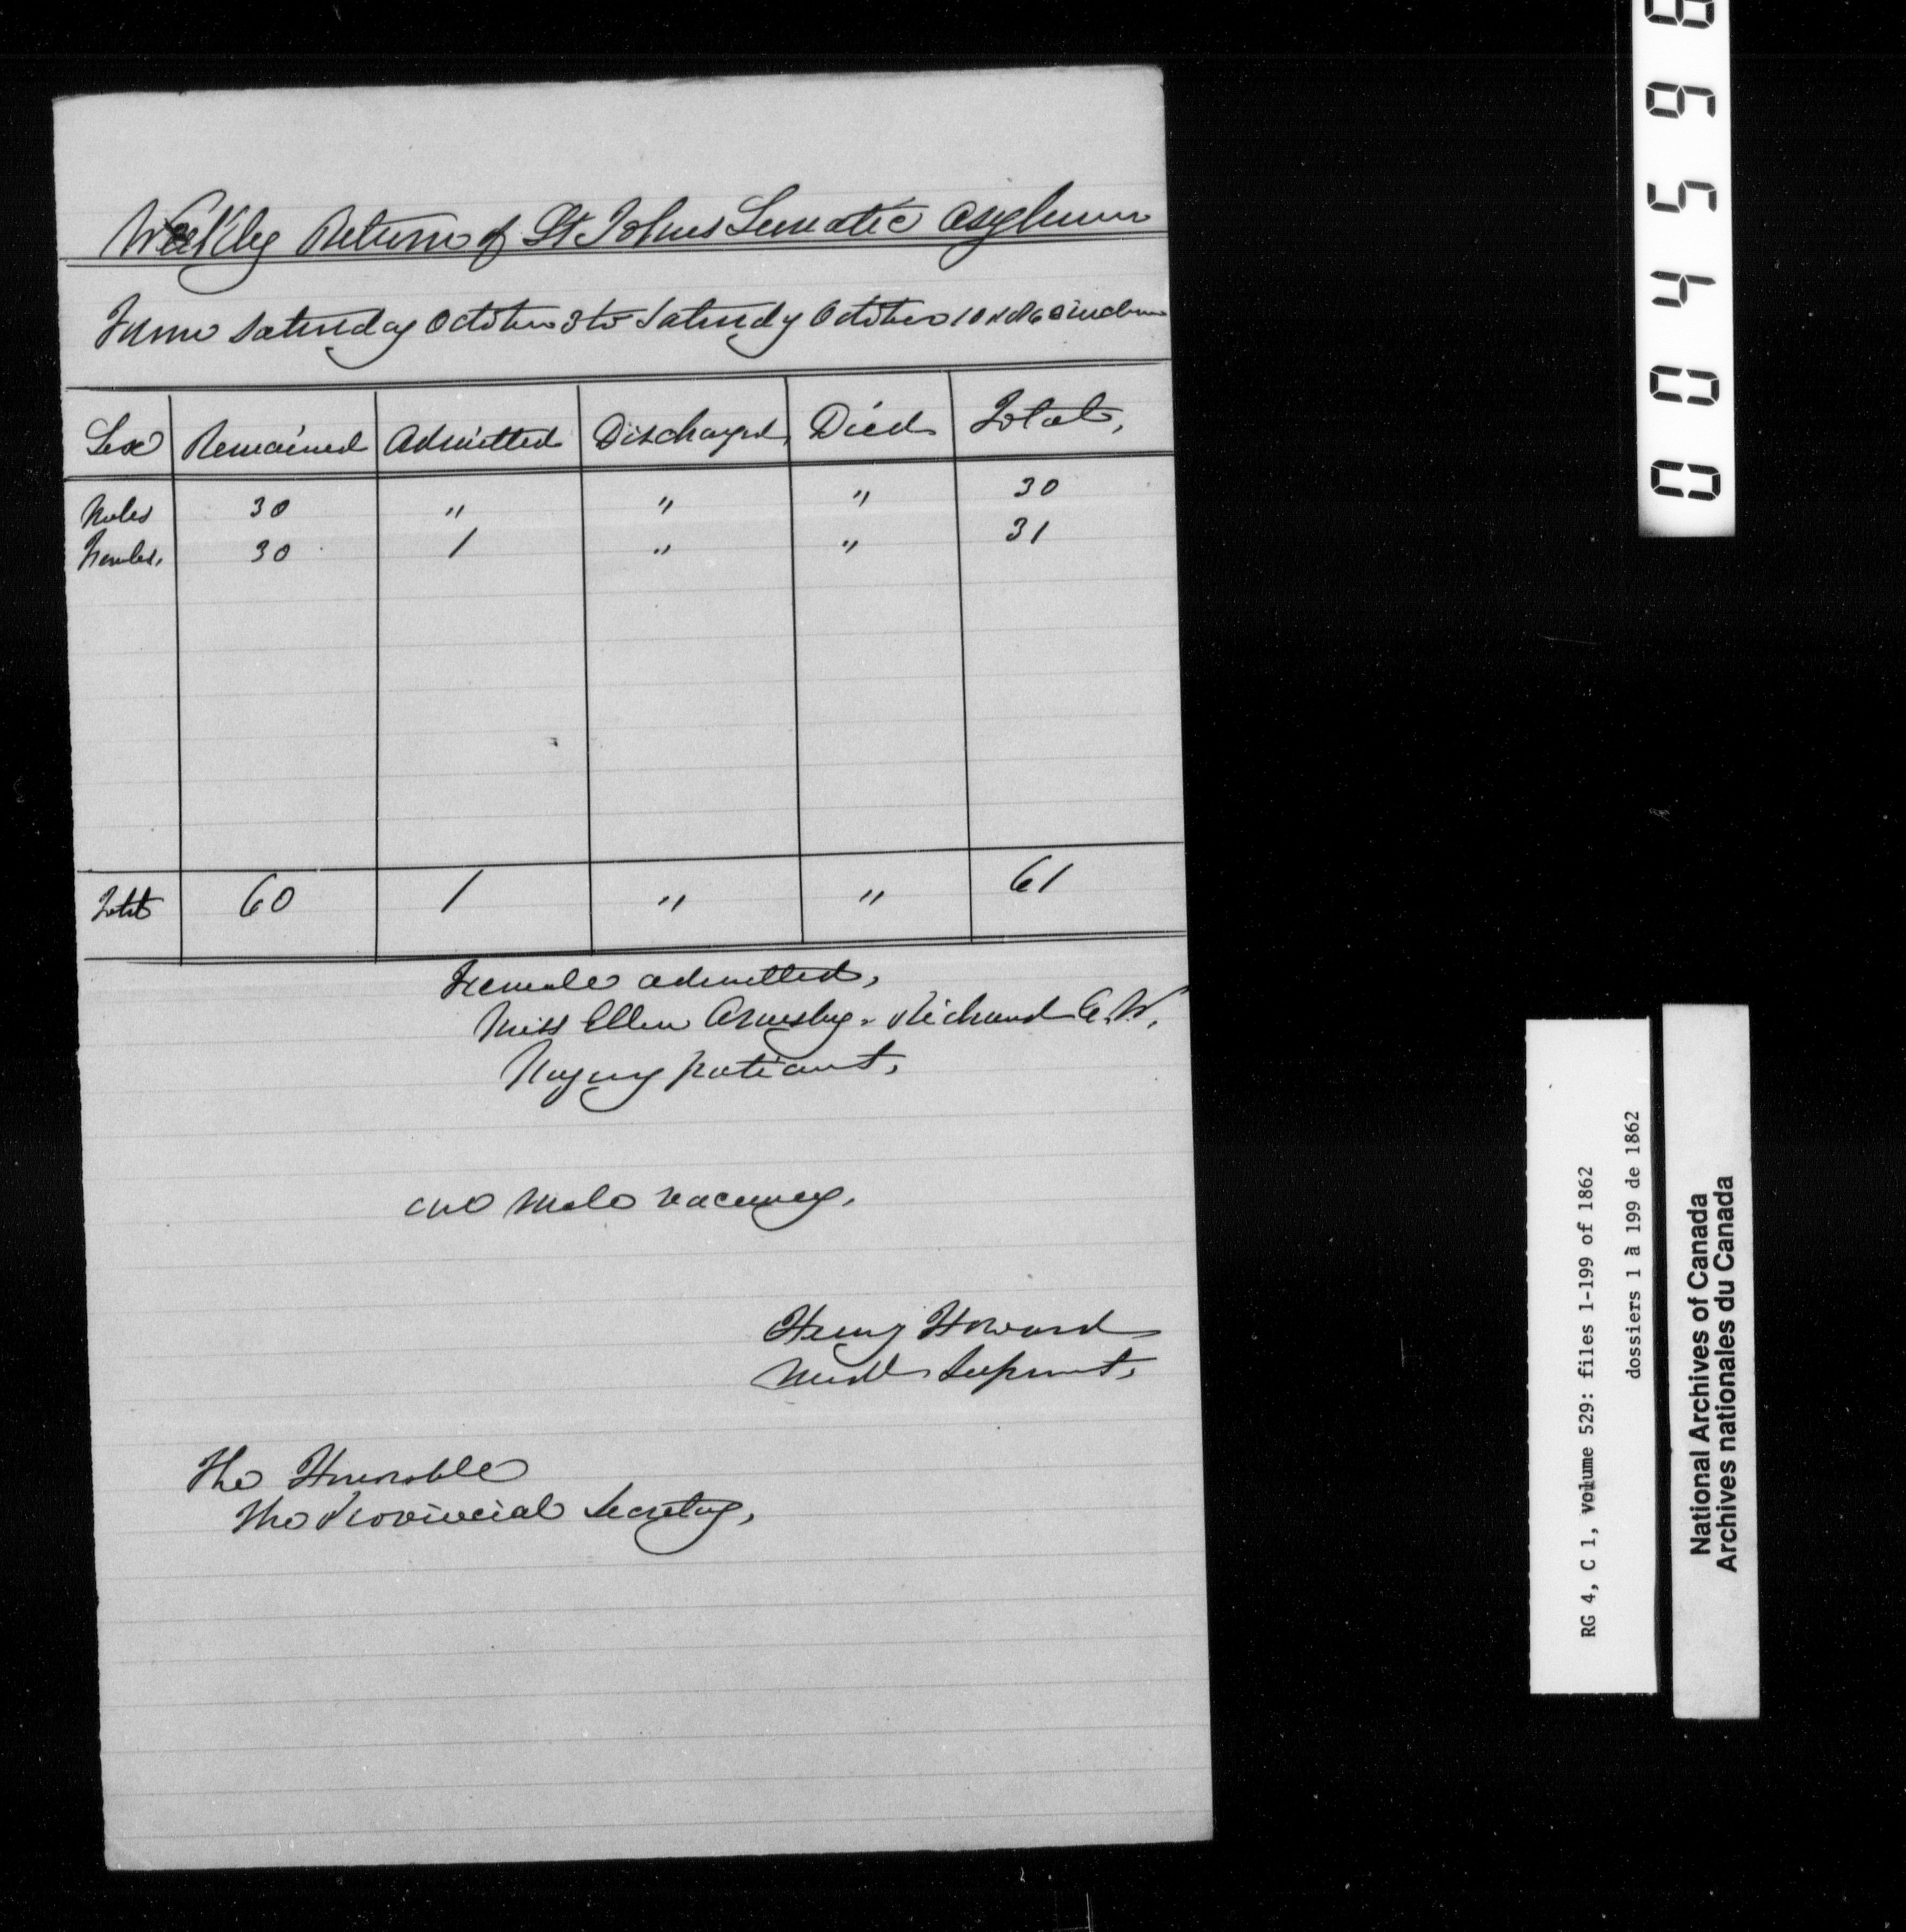 Weekly Return of St Johns Lunatic Asylum
From Saturday October 3 to Saturday October 10
Sex Remained Admitted Discharged Died Total,
Males 30 " " " 30
Females, 30 1 " " 31
Total 60 1 " " 61
Female admitted,
Miss Ellen Armsby. C.W.
Paying patient,
one Male vacancy.
Henry Howard
Medl Suprint,
The Honorable
The Provincial Secretary,
004598
RG 4, C 1, volume 529: files 1-199 of 1862
dossiers 1 à 199 de 1862
National Archives of Canada
Archives nationales du Canada